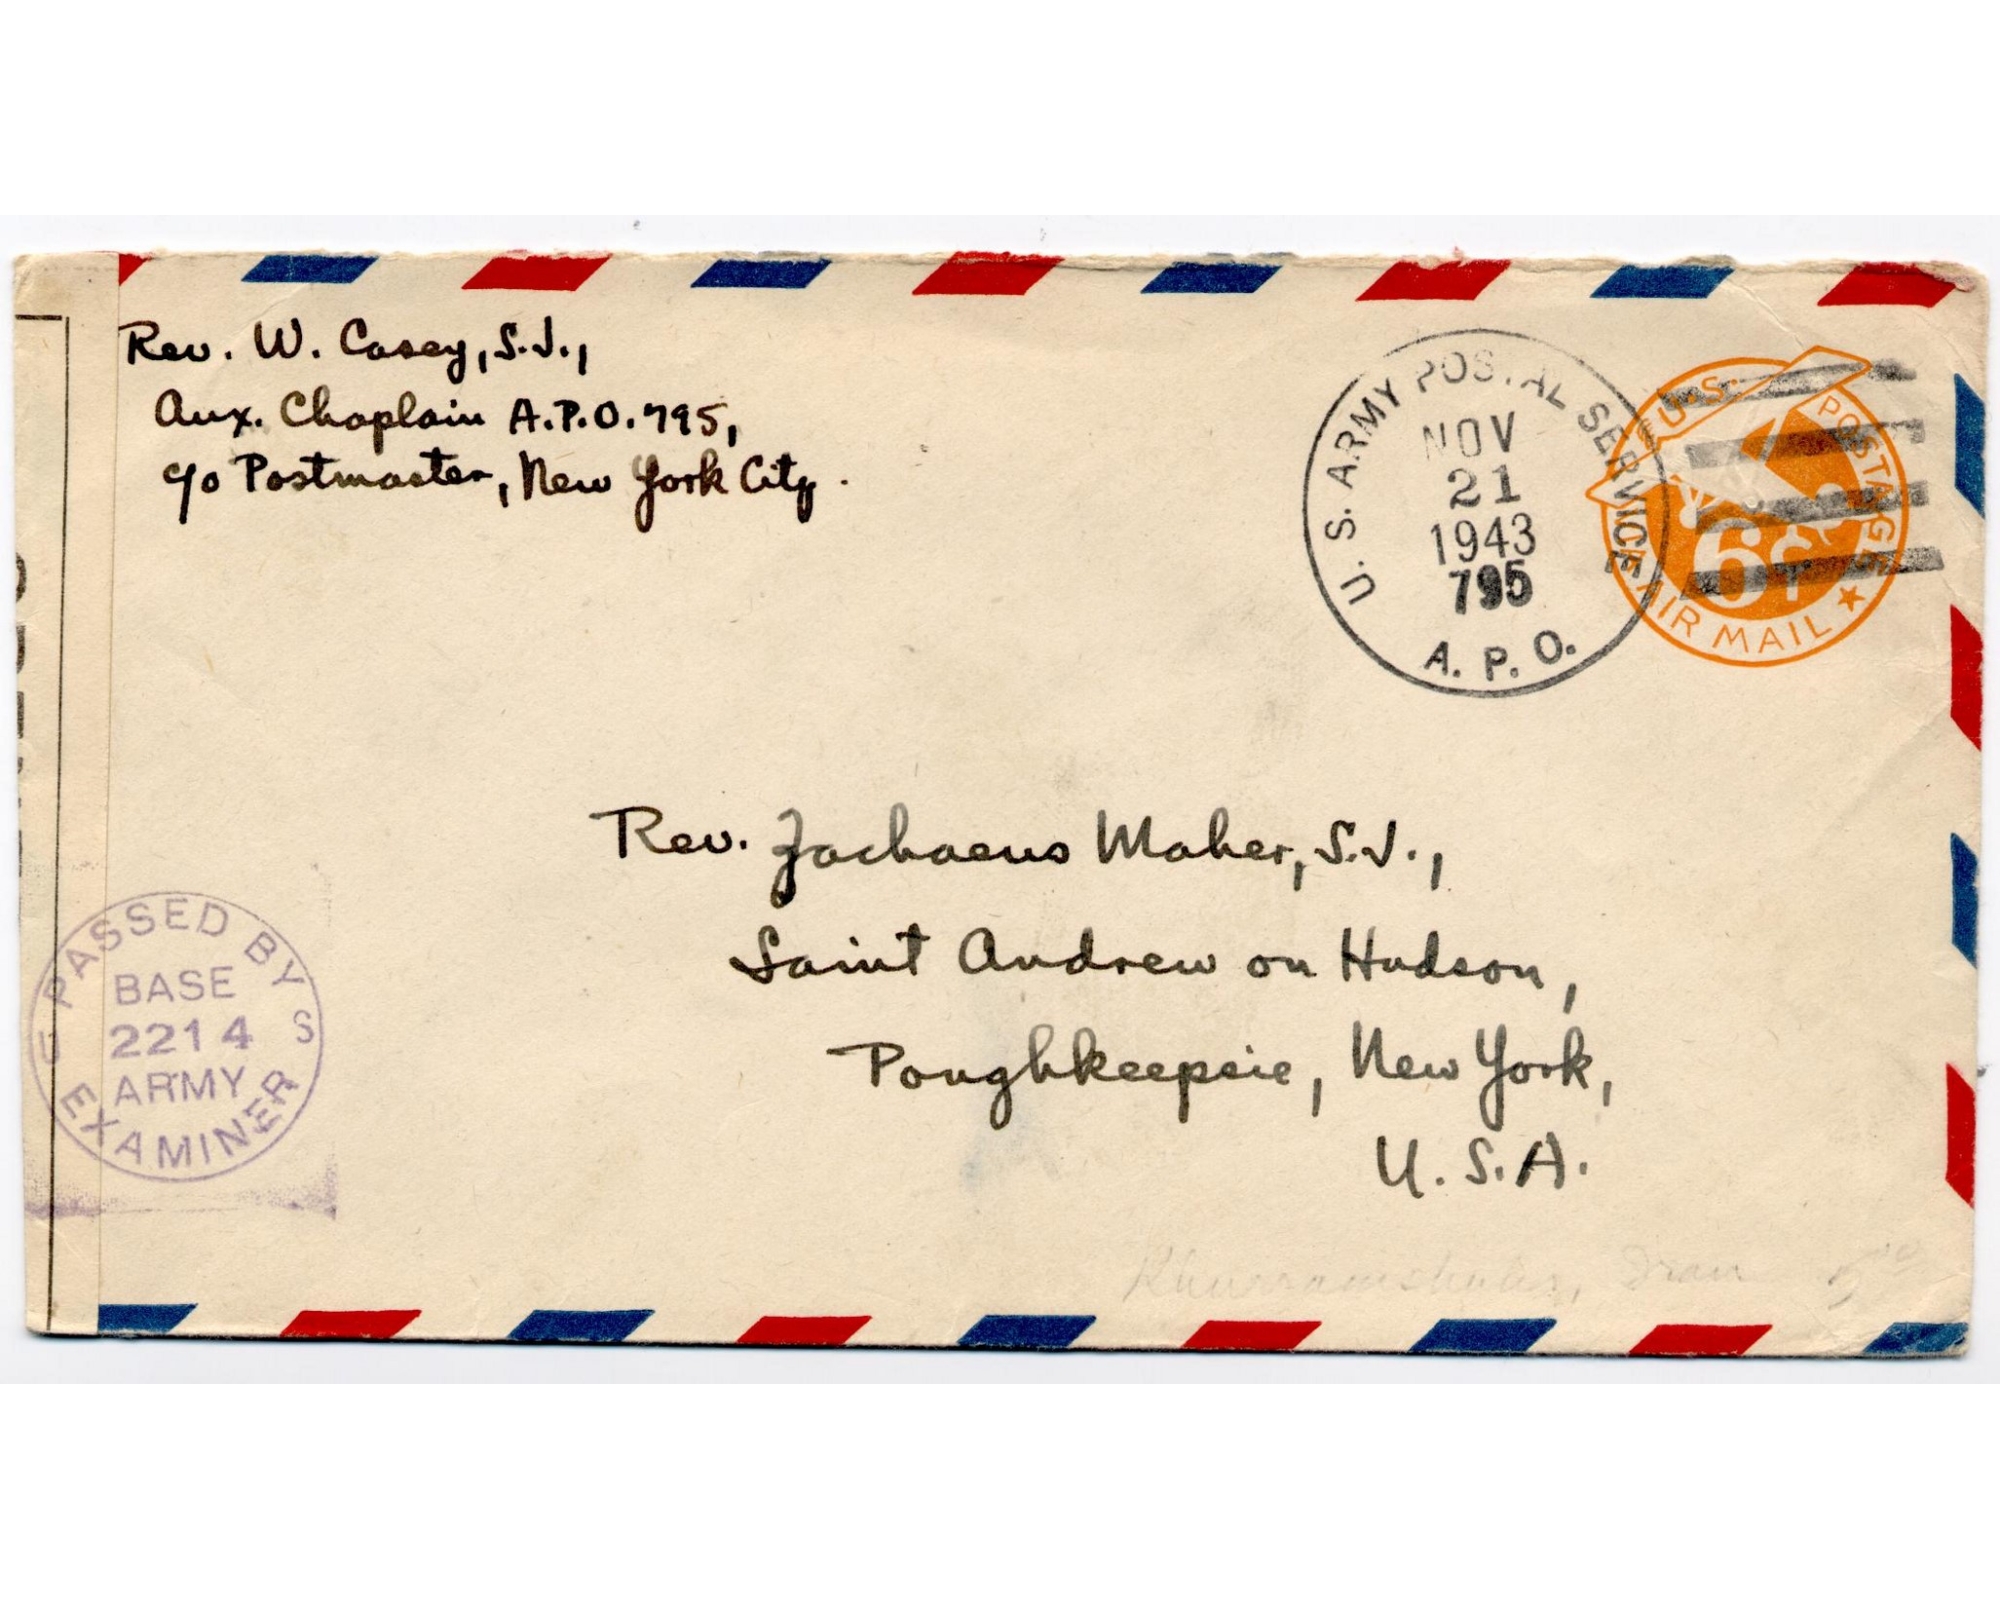 Rev. W. Casey, S.J.,
Aux. Chaplain A.P.O. 795,
c/o Postmaster, New York City.
U.S. ARMY POSTAL SERVICE
NOV
21
1943
795
A.P.O.
U.S. POSTAGE
6¢
AIR MAIL
Rev. Zachaeus Maher, S.J.,
Saint Andrew on Hudson,
Poughkeepsie, New York,
U.S.A.
PASSED BY
BASE
U 2214 S
ARMY
EXAMINER
Iran